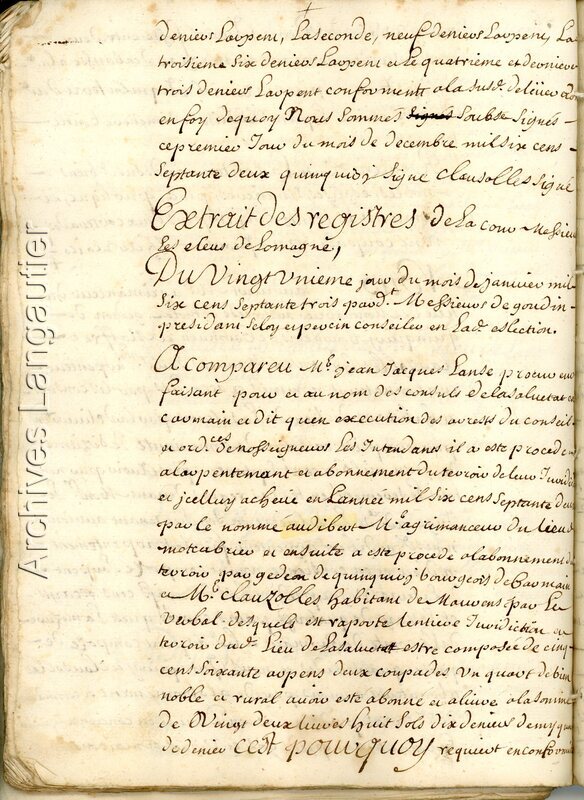 deniers Larpent, La seconde, neuf deniers Larpent, La
troisieme six deniers Larpent et Le quatrieme et dernier
trois deniers Larpent conformemt a la susd. deliberaon
en foy dequoy Nous sommes signés soubz signes
ce premier Jour du mois de decembre mil six cens
septante deux quinquiry signe Clauzolles signe
Extrait des registres de La cour Messieurs
Les eleus de Lomagne,
Du Vingt Vnieme jour du mois de janvier mil
six cens septante trois pard. Messieurs de goudin
president seloy et percin conseiller en Lad. eslection.
A compareu Me. jean Jacques Lanse procureur
faisant pour et au nom des consuls de La saluetat et
carmain et dit quen execution des arrests du conseil
et ordces. de nosseigneurs Les Intendans il a este procede
a larpentement et abonnement du terroir de leur Juridion
et jcelluy acheue en Lannee mil six cens septante deux
par le nommé audibert Me. agrimanceur du Lieu de
motcabrier et ensuite a este procede a labonnement du
terroir par gedeon de quinquiry bourgeois de Carmain
et Me. Clauzolles habitant de Mauvens par Le
verbal desquels est raporte lentiere Juridiction et
terroir dud. Lieu de La saluetat estre composée de cinq
cens soixante arpens deux coupades Un quart de bien
noble et rural auoir este abonné et aliure a la somme
de Vingt deux liures huit sols dix deniers demy quart
de denier Cest pourquoy requiert en conformité
Archives Langautier